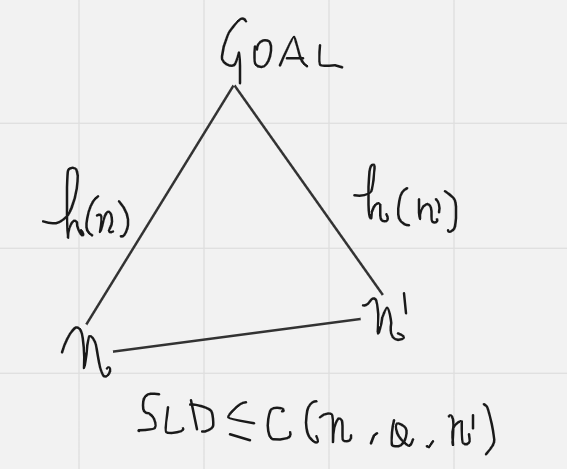 GOAL
h(n)
h(n')
n
n'
SLD ≤ C(n, a, n')